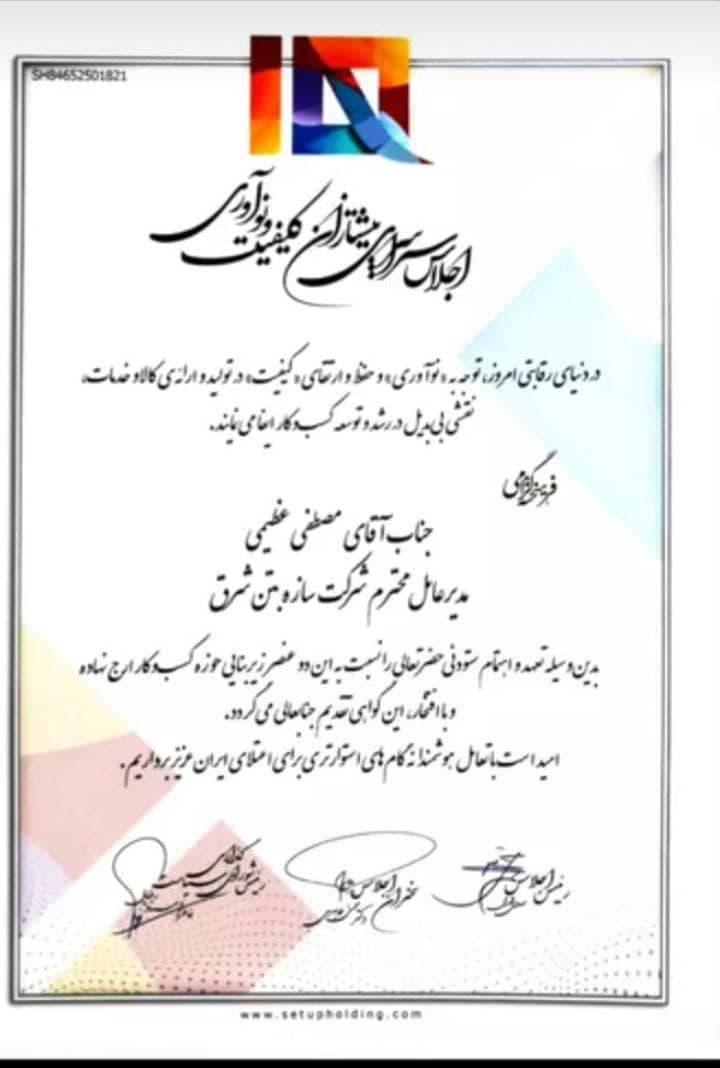 SH84652501821
IQ
اجلاس سراسری پیشتازان کیفیت و نوآوری
در دنیای رقابتی امروز، توجه به «نوآوری» و حفظ و ارتقای «کیفیت» در تولید و ارائه‌ی کالا و خدمات،
نقشی بی‌بدیل در رشد و توسعه کسب و کار ایفا می نمایند.
فرهیخته گرامی
جناب آقای مصطفی عظیمی
مدیرعامل محترم شرکت سازه بتن شرق
بدین وسیله تعهد و اهتمام ستودنی حضرتعالی را نسبت به این دو عنصر زیربنایی حوزه کسب و کار ارج نهاده
و با افتخار، این گواهی تقدیم جنابعالی می گردد.
امید است با تعامل هوشمندانه گام های استوارتری برای اعتلای ایران عزیز برداریم.
رئیس اجلاس
سخنران اجلاس
رئیس شورای سیاست گذاری
www.setupholding.com